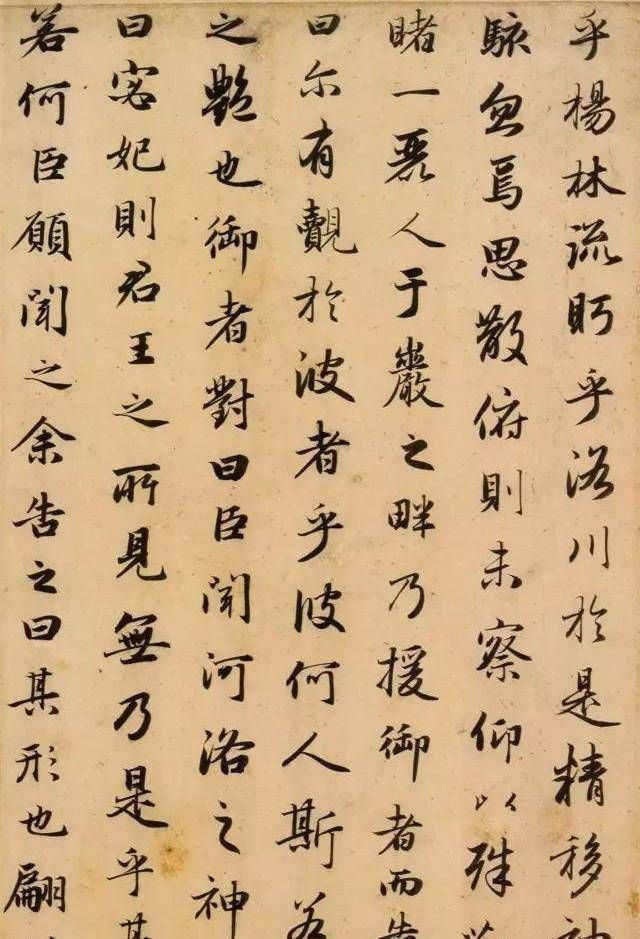 乎楊林流眄乎洛川於是精移神
駭忽焉思散俯則未察仰以殊
睹一麗人于巖之畔乃援御者而告
曰尓有覿於彼者乎彼何人斯若
之艷也御者對曰臣聞河洛之神
曰宓妃則君王之所見無乃是乎其
若何臣願聞之余告之曰其形也翩